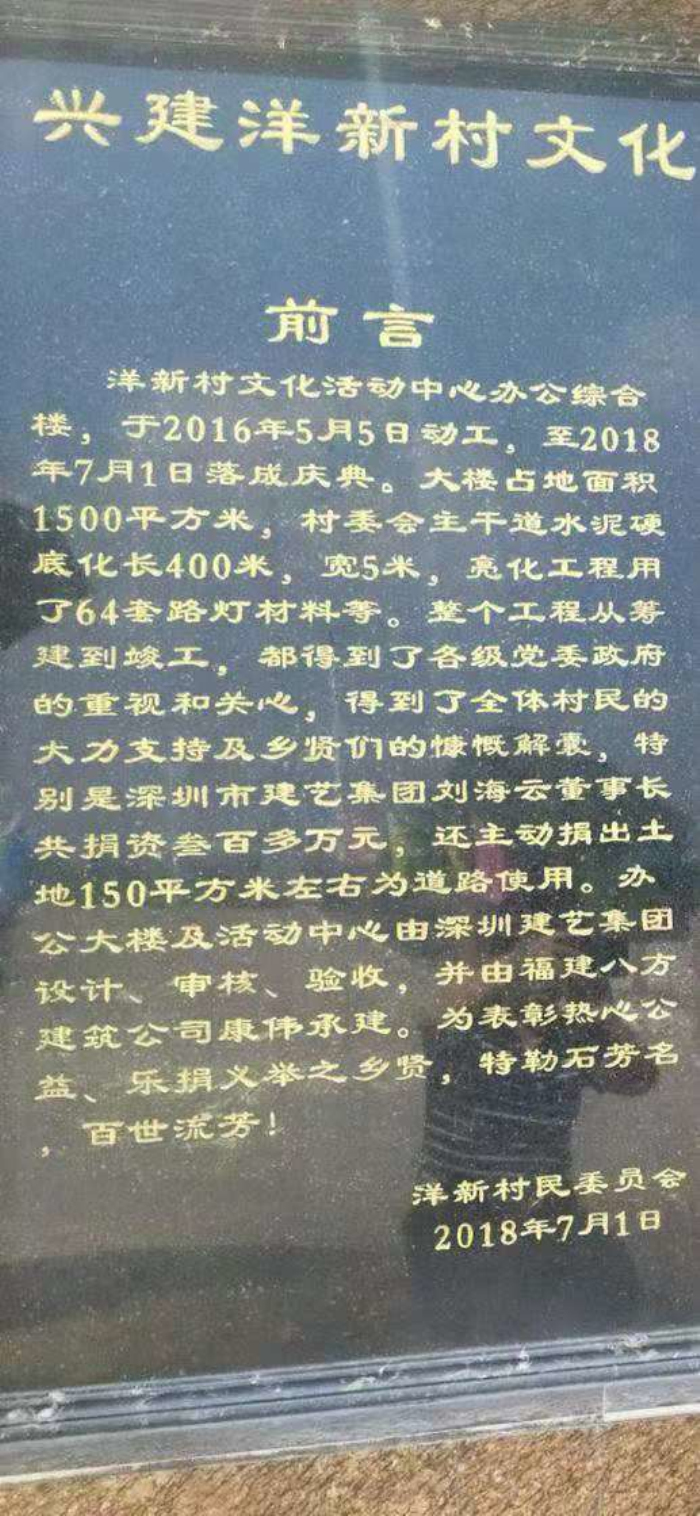 兴建洋新村文化
前言
洋新村文化活动中心办公综合
楼，于2016年5月5日动工，至2018
年7月1日落成庆典。大楼占地面积
1500平方米，村委会主干道水泥硬
底化长400米，宽5米，亮化工程用
了64套路灯材料等。整个工程从筹
建到竣工，都得到了各级党委政府
的重视和关心，得到了全体村民的
大力支持及乡贤们的慷慨解囊，特
别是深圳市建艺集团刘海云董事长
共捐资叁百多万元，还主动捐出土
地150平方米左右为道路使用。办
公大楼及活动中心由深圳建艺集团
设计、审核、验收，并由福建八方
建筑公司康伟承建。为表彰热心公
益、乐捐义举之乡贤，特勒石芳名
，百世流芳！
洋新村民委员会
2018年7月1日